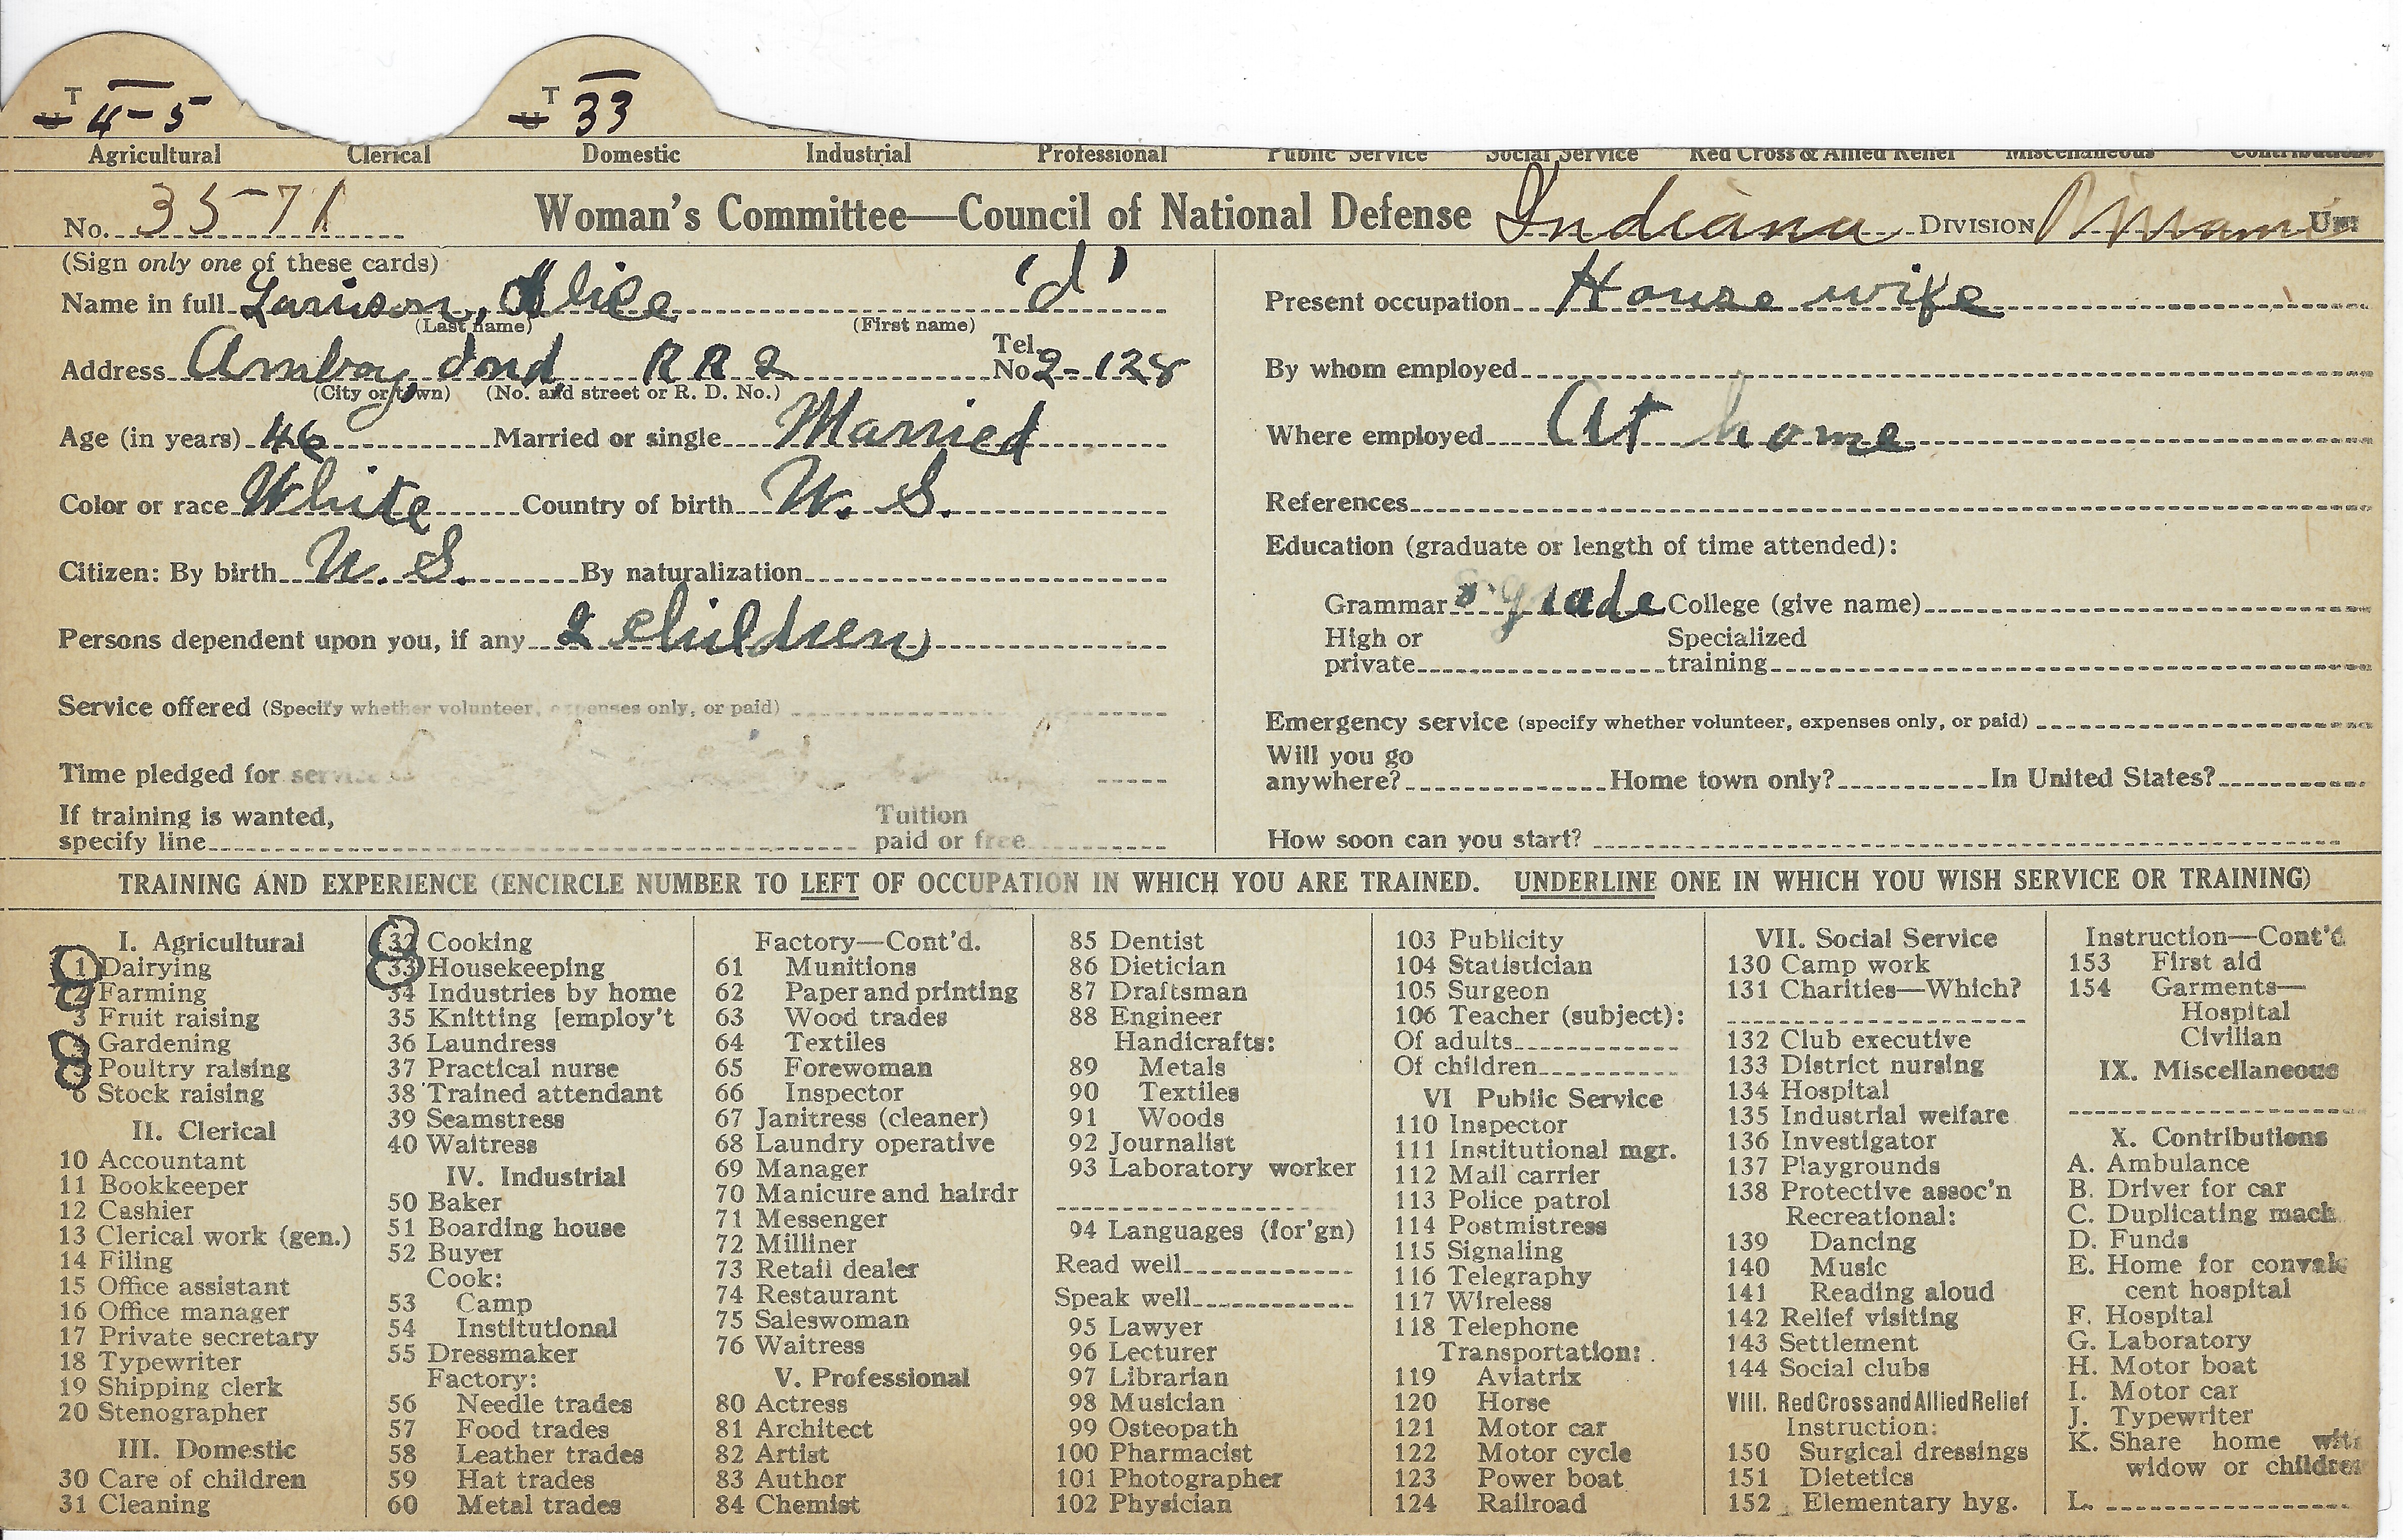 T 4-5 T 33
Agricultural Clerical Domestic Industrial Professional Public Service Social Service Red Cross & Allied Relief Miscellaneous Contributions
No. 3571 Woman's Committee—Council of National Defense Indiana DIVISION Miami UNIT
(Sign only one of these cards)
Name in full Larison, Alice 'd'
(Last name) (First name)
Address Amboy Ind RR2 Tel. No 2-128
(City or town) (No. and street or R. D. No.)
Age (in years) 46 Married or single Married
Color or race White Country of birth U. S.
Citizen: By birth U. S. By naturalization
Persons dependent upon you, if any 2 children
Service offered (Specify whether volunteer, expenses only, or paid)
Time pledged for service
If training is wanted, Tuition
specify line paid or free
Present occupation House wife
By whom employed
Where employed At home
References
Education (graduate or length of time attended):
Grammar 8 grade College (give name)
High or Specialized
private training
Emergency service (specify whether volunteer, expenses only, or paid)
Will you go
anywhere? Home town only? In United States?
How soon can you start?
TRAINING AND EXPERIENCE (ENCIRCLE NUMBER TO LEFT OF OCCUPATION IN WHICH YOU ARE TRAINED. UNDERLINE ONE IN WHICH YOU WISH SERVICE OR TRAINING)
I. Agricultural
1 Dairying
2 Farming
3 Fruit raising
4 Gardening
5 Poultry raising
6 Stock raising
II. Clerical
10 Accountant
11 Bookkeeper
12 Cashier
13 Clerical work (gen.)
14 Filing
15 Office assistant
16 Office manager
17 Private secretary
18 Typewriter
19 Shipping clerk
20 Stenographer
III. Domestic
30 Care of children
31 Cleaning
32 Cooking
33 Housekeeping
34 Industries by home
35 Knitting [employ't
36 Laundress
37 Practical nurse
38 Trained attendant
39 Seamstress
40 Waitress
IV. Industrial
50 Baker
51 Boarding house
52 Buyer
Cook:
53 Camp
54 Institutional
55 Dressmaker
Factory:
56 Needle trades
57 Food trades
58 Leather trades
59 Hat trades
60 Metal trades
Factory—Cont'd.
61 Munitions
62 Paper and printing
63 Wood trades
64 Textiles
65 Forewoman
66 Inspector
67 Janitress (cleaner)
68 Laundry operative
69 Manager
70 Manicure and hairdr
71 Messenger
72 Milliner
73 Retail dealer
74 Restaurant
75 Saleswoman
76 Waitress
V. Professional
80 Actress
81 Architect
82 Artist
83 Author
84 Chemist
85 Dentist
86 Dietician
87 Draftsman
88 Engineer
Handicrafts:
89 Metals
90 Textiles
91 Woods
92 Journalist
93 Laboratory worker
94 Languages (for'gn)
Read well
Speak well
95 Lawyer
96 Lecturer
97 Librarian
98 Musician
99 Osteopath
100 Pharmacist
101 Photographer
102 Physician
103 Publicity
104 Statistician
105 Surgeon
106 Teacher (subject):
Of adults
Of children
VI Public Service
110 Inspector
111 Institutional mgr.
112 Mail carrier
113 Police patrol
114 Postmistress
115 Signaling
116 Telegraphy
117 Wireless
118 Telephone
Transportation:
119 Aviatrix
120 Horse
121 Motor car
122 Motor cycle
123 Power boat
124 Railroad
VII. Social Service
130 Camp work
131 Charities—Which?
132 Club executive
133 District nursing
134 Hospital
135 Industrial welfare
136 Investigator
137 Playgrounds
138 Protective assoc'n
Recreational:
139 Dancing
140 Music
141 Reading aloud
142 Relief visiting
143 Settlement
144 Social clubs
VIII. Red Cross and Allied Relief
Instruction:
150 Surgical dressings
151 Dietetics
152 Elementary hyg.
Instruction—Cont'd
153 First aid
154 Garments—
Hospital
Civilian
IX. Miscellaneous
X. Contributions
A. Ambulance
B. Driver for car
C. Duplicating mach
D. Funds
E. Home for convales
cent hospital
F. Hospital
G. Laboratory
H. Motor boat
I. Motor car
J. Typewriter
K. Share home with
widow or children
L.